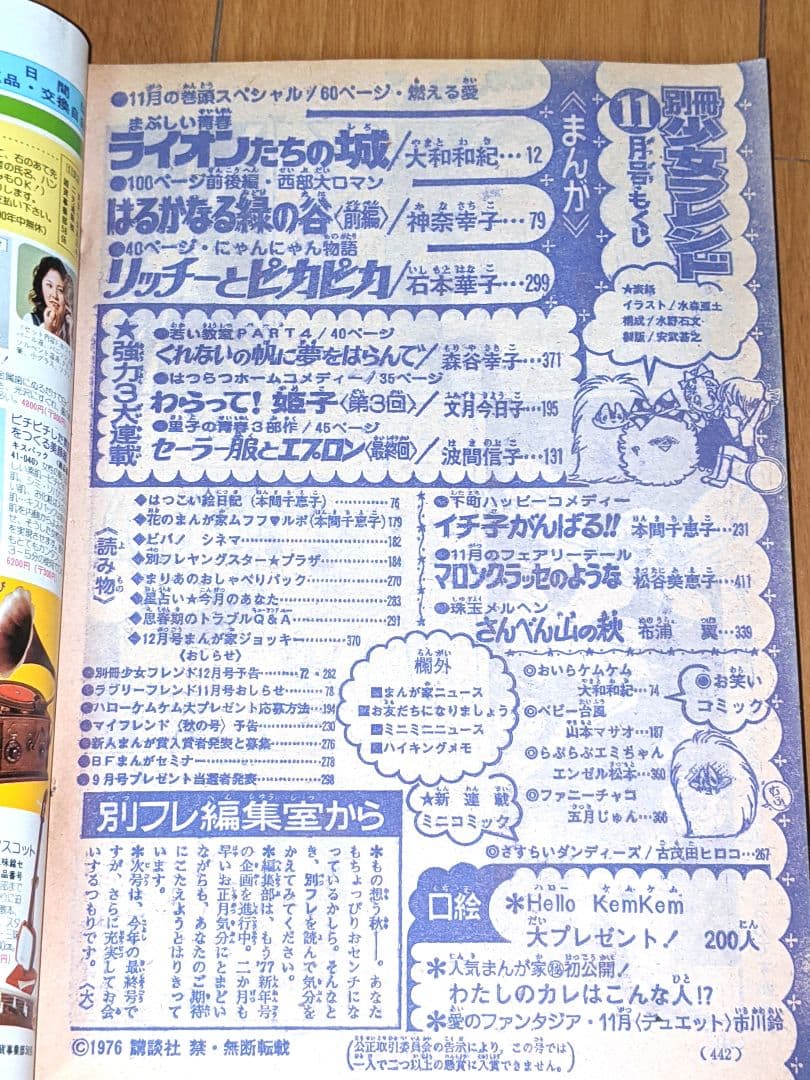 別冊少女フレンド
11月号もくじ
★表紙
イラスト/水森亜土
構成/水野石文
製版/安武甚之
《まんが》
●11月の巻頭スペシャル/60ページ・燃える愛
まぶしい青春
ライオンたちの城/大和和紀…12
●100ページ前後編・西部大ロマン
はるかなる緑の谷〈前編〉/神奈幸子…79
●40ページ・にゃんにゃん物語
リッチーとピカピカ/石本華子…299
★強力3大連載
●若い教室PART4/40ページ
くれないの帆に夢をはらんで/森谷幸子…371
●はつらつホームコメディー/35ページ
わらって!姫子〈第3回〉/文月今日子…195
●里子の青春3部作/45ページ
セーラー服とエプロン〈最終回〉/波間信子…131
〈読み物〉
◆はつこい絵日記(本間千恵子)…76
◆花のまんが家ムフフ♥ルポ(本間千恵子)179
◆ビバ!シネマ…182
◆別フレヤングスター♥プラザ…184
◆まりあのおしゃべりパック…270
◆星占い★今月のあなた…283
◆思春期のトラブルQ&A…291
◆12月号まんが家ジョッキー…370
《おしらせ》
●別冊少女フレンド12月号予告…72・282
●ラブリーフレンド11月号おしらせ…78
●ハローケムケム大プレゼント応募方法…194
●マイフレンド〈秋の号〉予告…230
●新人まんが賞入賞者発表と募集…276
●BFまんがセミナー…278
●9月号プレゼント当選者発表…298
●下町ハッピーコメディー
イチ子がんばる!!本間千恵子…231
●11月のフェアリーテール
マロングラッセのような 松谷美恵子…411
●珠玉メルヘン
さんべん山の萩 布浦 翼…339
欄外
まんが家ニュース
お友だちになりましょう
ミニミニニュース
ハイキングメモ
◎お笑いコミック
◎おいらケムケム
大和和紀…74
◎ベビー台風
山本マサオ…187
◎らぶらぶエミちゃん
エンゼル松本…360
◎ファニーチャコ
五月じゅん…366
★新連載
ミニコミック
◎さすらいダンディーズ/古茂田ヒロコ…267
別フレ編集室から
＊もの想う秋──。あなた
もちょっぴりおセンチにな
っているかしら。そんなと
き、別フレを読んで気分を
かえてみてください。
＊編集部は、もう'77新年号
の企画を進行中。二か月も
早いお正月気分にとまどい
ながらも、あなたのご期待
にこたえようとはりきって
います。
＊次号は、今年の最終号で
すが、さらに充実してお会
いするつもりです。〈大〉
口絵
＊Hello KemKem
大プレゼント! 200人
＊人気まんが家㊙初公開!
わたしのカレはこんな人!?
＊愛のファンタジア・11月〈デュエット〉市川鈴
©1976 講談社 禁・無断転載
(公正取引委員会の告示により、この号では
一人で二つ以上の懸賞に入賞できません。)
(442)